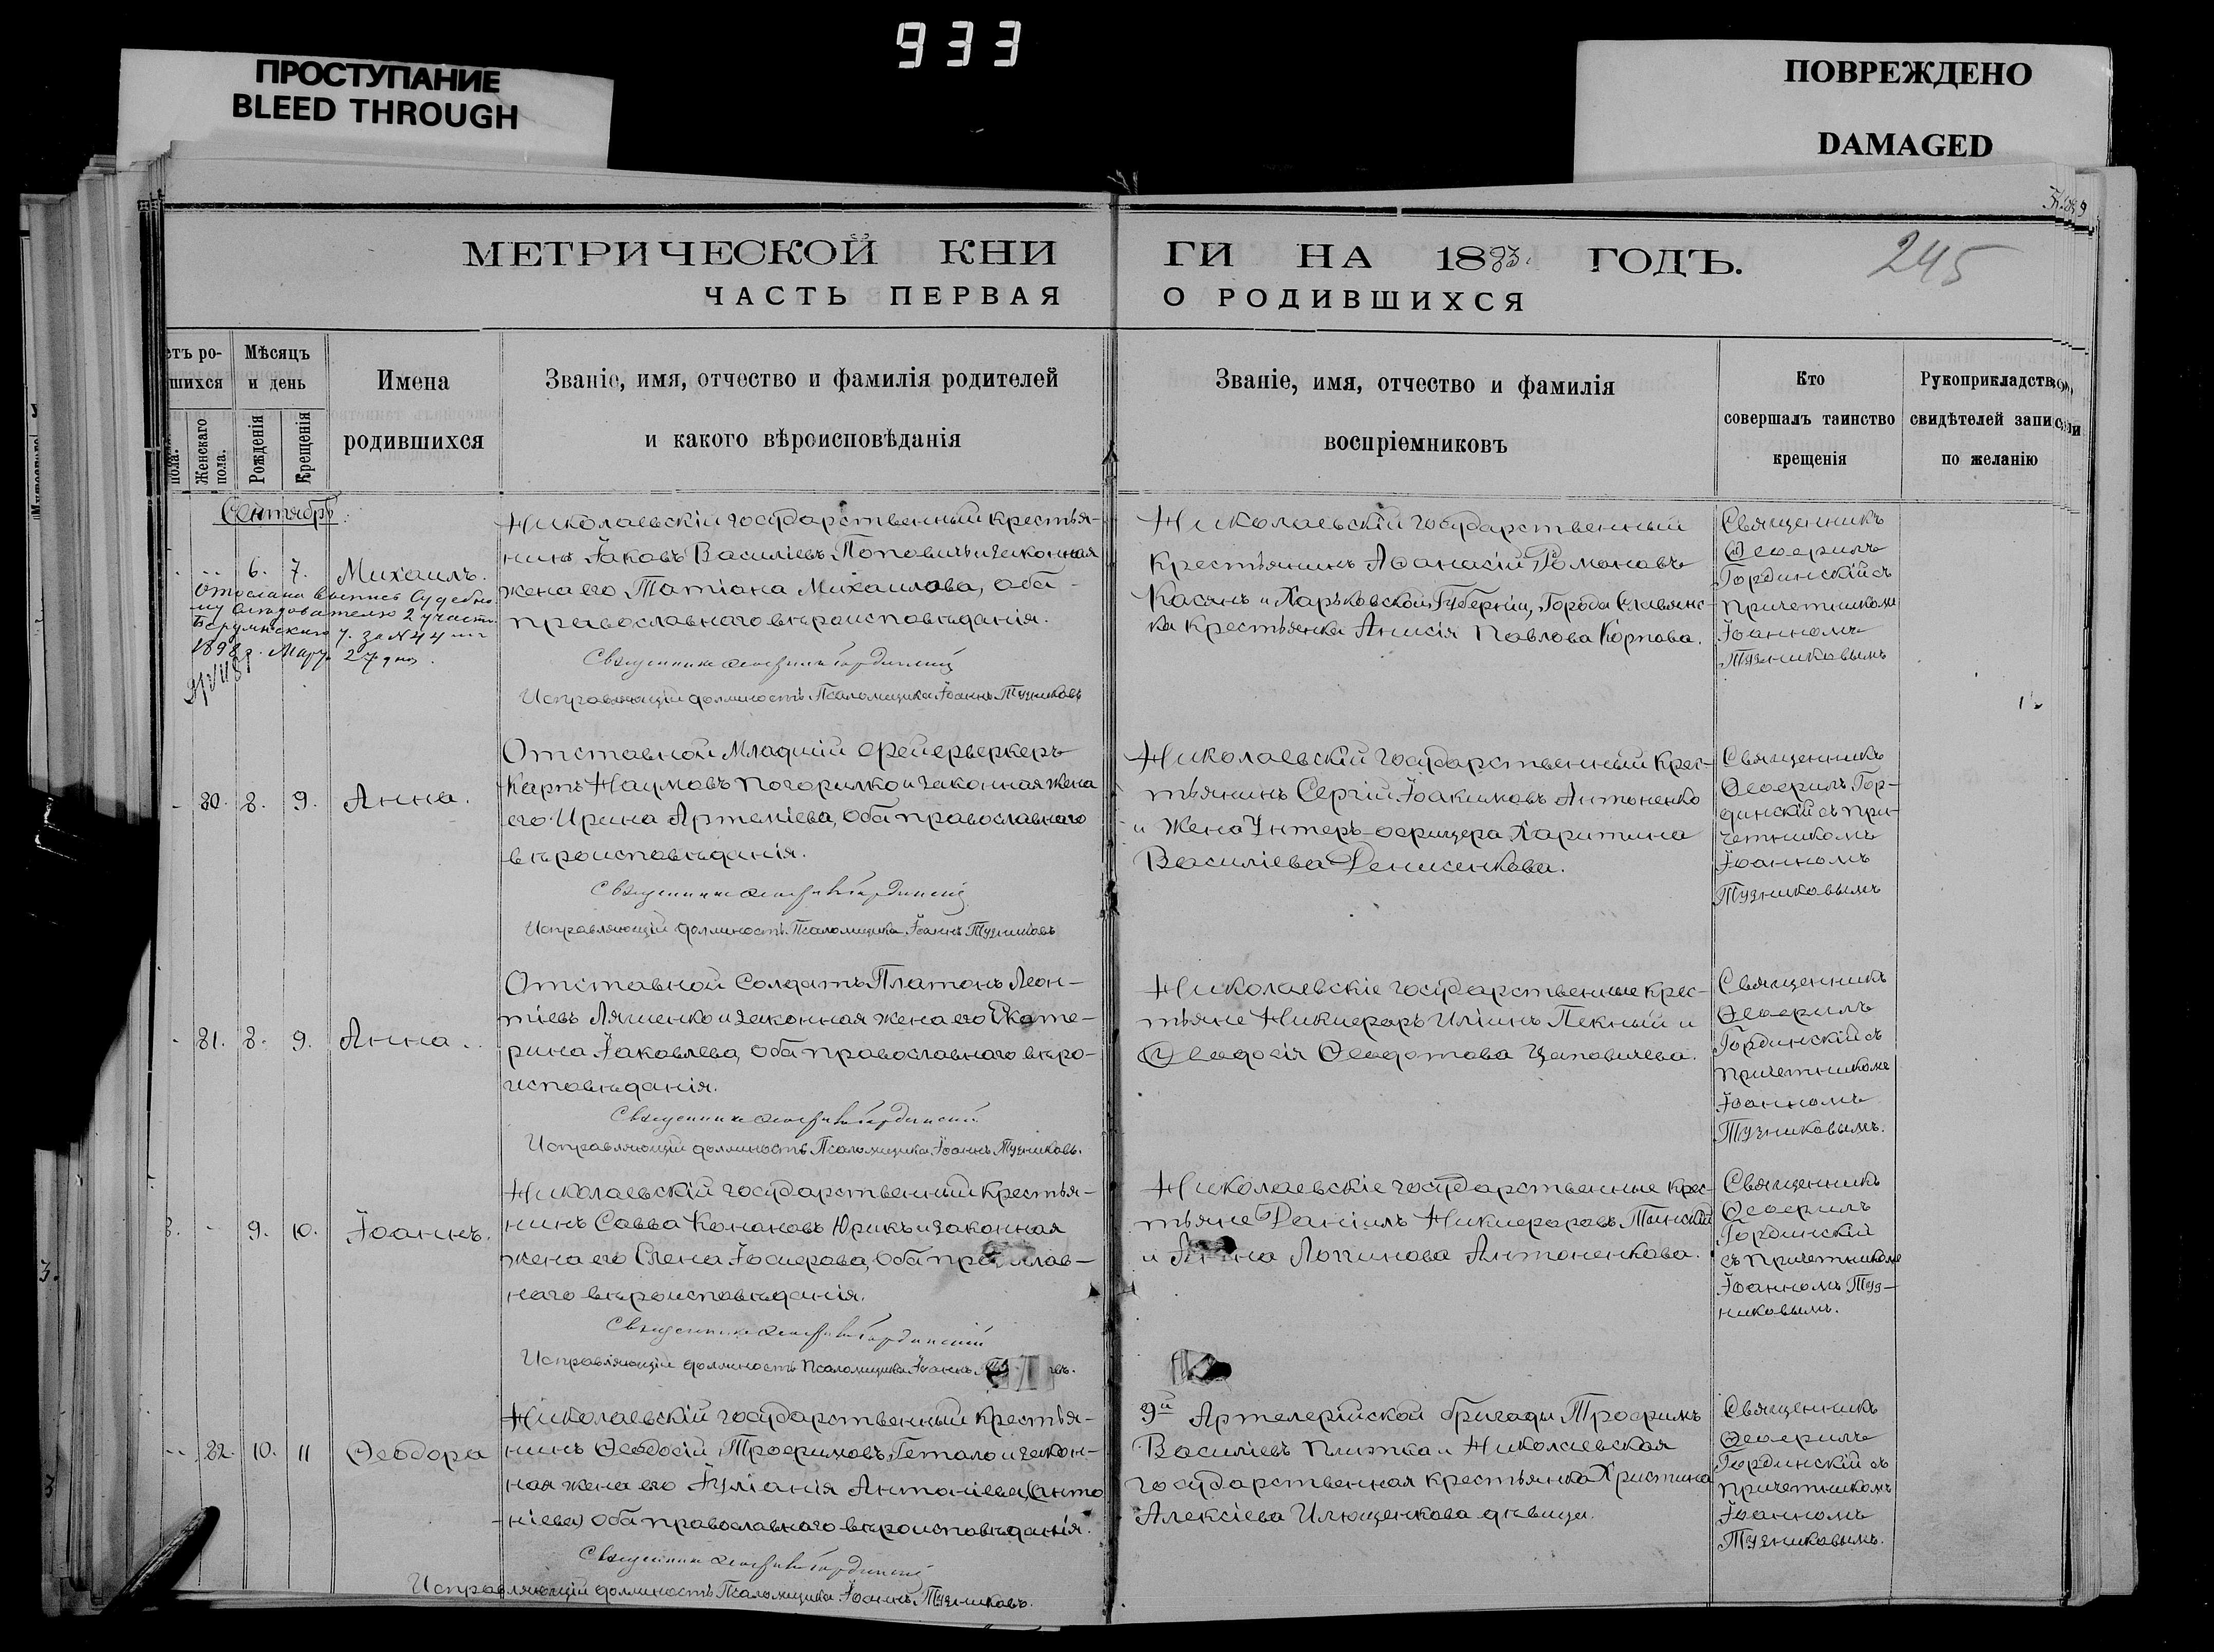 933
ПРОСТУПАНИЕ
BLEED THROUGH
ПОВРЕЖДЕНО
DAMAGED
МЕТРИЧЕСКОЙ КНИ
ГИ НА 1883. ГОДЪ.
245
ЧАСТЬ ПЕРВАЯ
О РОДИВШИХСЯ
етъ ро-
шихся
пола.
Женскаго пола.
Мѣсяцъ
и день
Рожденія
Крещенія
Имена
родившихся
Званіе, имя, отчество и фамилія родителей
и какого вѣроисповѣданія
Званіе, имя, отчество и фамилія
воспріемниковъ
Кто
совершалъ таинство
крещенія
Рукоприкладство
свидѣтелей записи
по желанію
Сентябрь.
6. 7. Михаилъ.
Отослана выпись Судебно
му Слѣдователю 2 участ.
1898 г. Мар. 27 дня.
Николаевскій государственный крестья-
нинъ Іаковъ Василіевъ Поповичъ и законная
жена его Татіана Михаилова, оба
православнаго вѣроисповѣданія.
Священникъ Ѳеофилъ Гординскій
Исправляющій должность Псаломщика Іоаннъ Тузниковъ
Николаевскій государственный
крестьянинъ Аѳанасій Романовъ
Касянъ и Харьковской Губерніи, Города Славянс-
ка крестьянка Анисія Павлова Карпова.
Священникъ
Ѳеофилъ
Гординскій съ
причетникомъ
Іоанномъ
Тузниковымъ
80. 8. 9. Анна.
Отставной Младшій фейерверкеръ
Карпъ Наумовъ Погорилко и законная жена
его Ирина Артеміева, оба православнаго
вѣроисповѣданія.
Священникъ Ѳеофилъ Гординскій
Исправляющій должность Псаломщика Іоаннъ Тузниковъ
Николаевскій государственный крес-
тьянинъ Сергій Іоакимовъ Антоненко
и жена Унтеръ-офицера Харитина
Василіева Денисенкова.
Священникъ
Ѳеофилъ Гор-
динскій съ при-
четникомъ
Іоанномъ
Тузниковымъ
81. 8. 9. Анна.
Отставной Солдатъ Платонъ Леон-
тіевъ Ляшенко и законная жена его Екате-
рина Іаковлева, оба православнаго вѣро-
исповѣданія.
Священникъ Ѳеофилъ Гординскій
Исправляющій должность Псаломщика Іоаннъ Тузниковъ.
Николаевскіе государственные крес-
тьяне Никифоръ Иліинъ Пекный и
Ѳеодосія Ѳеодотова Цаповичева.
Священникъ
Ѳеофилъ
Гординскій съ
причетникомъ
Іоанномъ
Тузниковымъ.
9. 10. Іоаннъ.
Николаевскій государственный крестья-
нинъ Савва Конановъ Юрикъ и законная
жена его Елена Іосифова, оба православ-
наго вѣроисповѣданія.
Священникъ Ѳеофилъ Гординскій
Исправляющій должность Псаломщика Іоаннъ
Николаевскіе государственные крес-
тьяне Даніилъ Никифоровъ
и Логгинова Антоненкова.
Священникъ
Ѳеофилъ
Гординскій
съ причетникомъ
Іоанномъ Туз-
никовымъ.
82. 10. 11 Ѳеодора
Николаевскій государственный крестья-
нинъ Ѳеодосій Трофимовъ Гетало и закон-
ная жена его Іуліанія Антоніева, (Анто
ніева) оба православнаго вѣроисповѣданія.
Священникъ Ѳеофилъ Гординскій
Исправляющій должность Псаломщика Іоаннъ Тузниковъ.
9й Артелерійской бригады Трофимъ
Василіевъ Плитка и Николаевская
государственная крестьянка Христина
Алексіева Илющенкова дѣвица.
Священникъ
Ѳеофилъ
Гординскій съ
причетникомъ
Іоанномъ
Тузниковымъ.